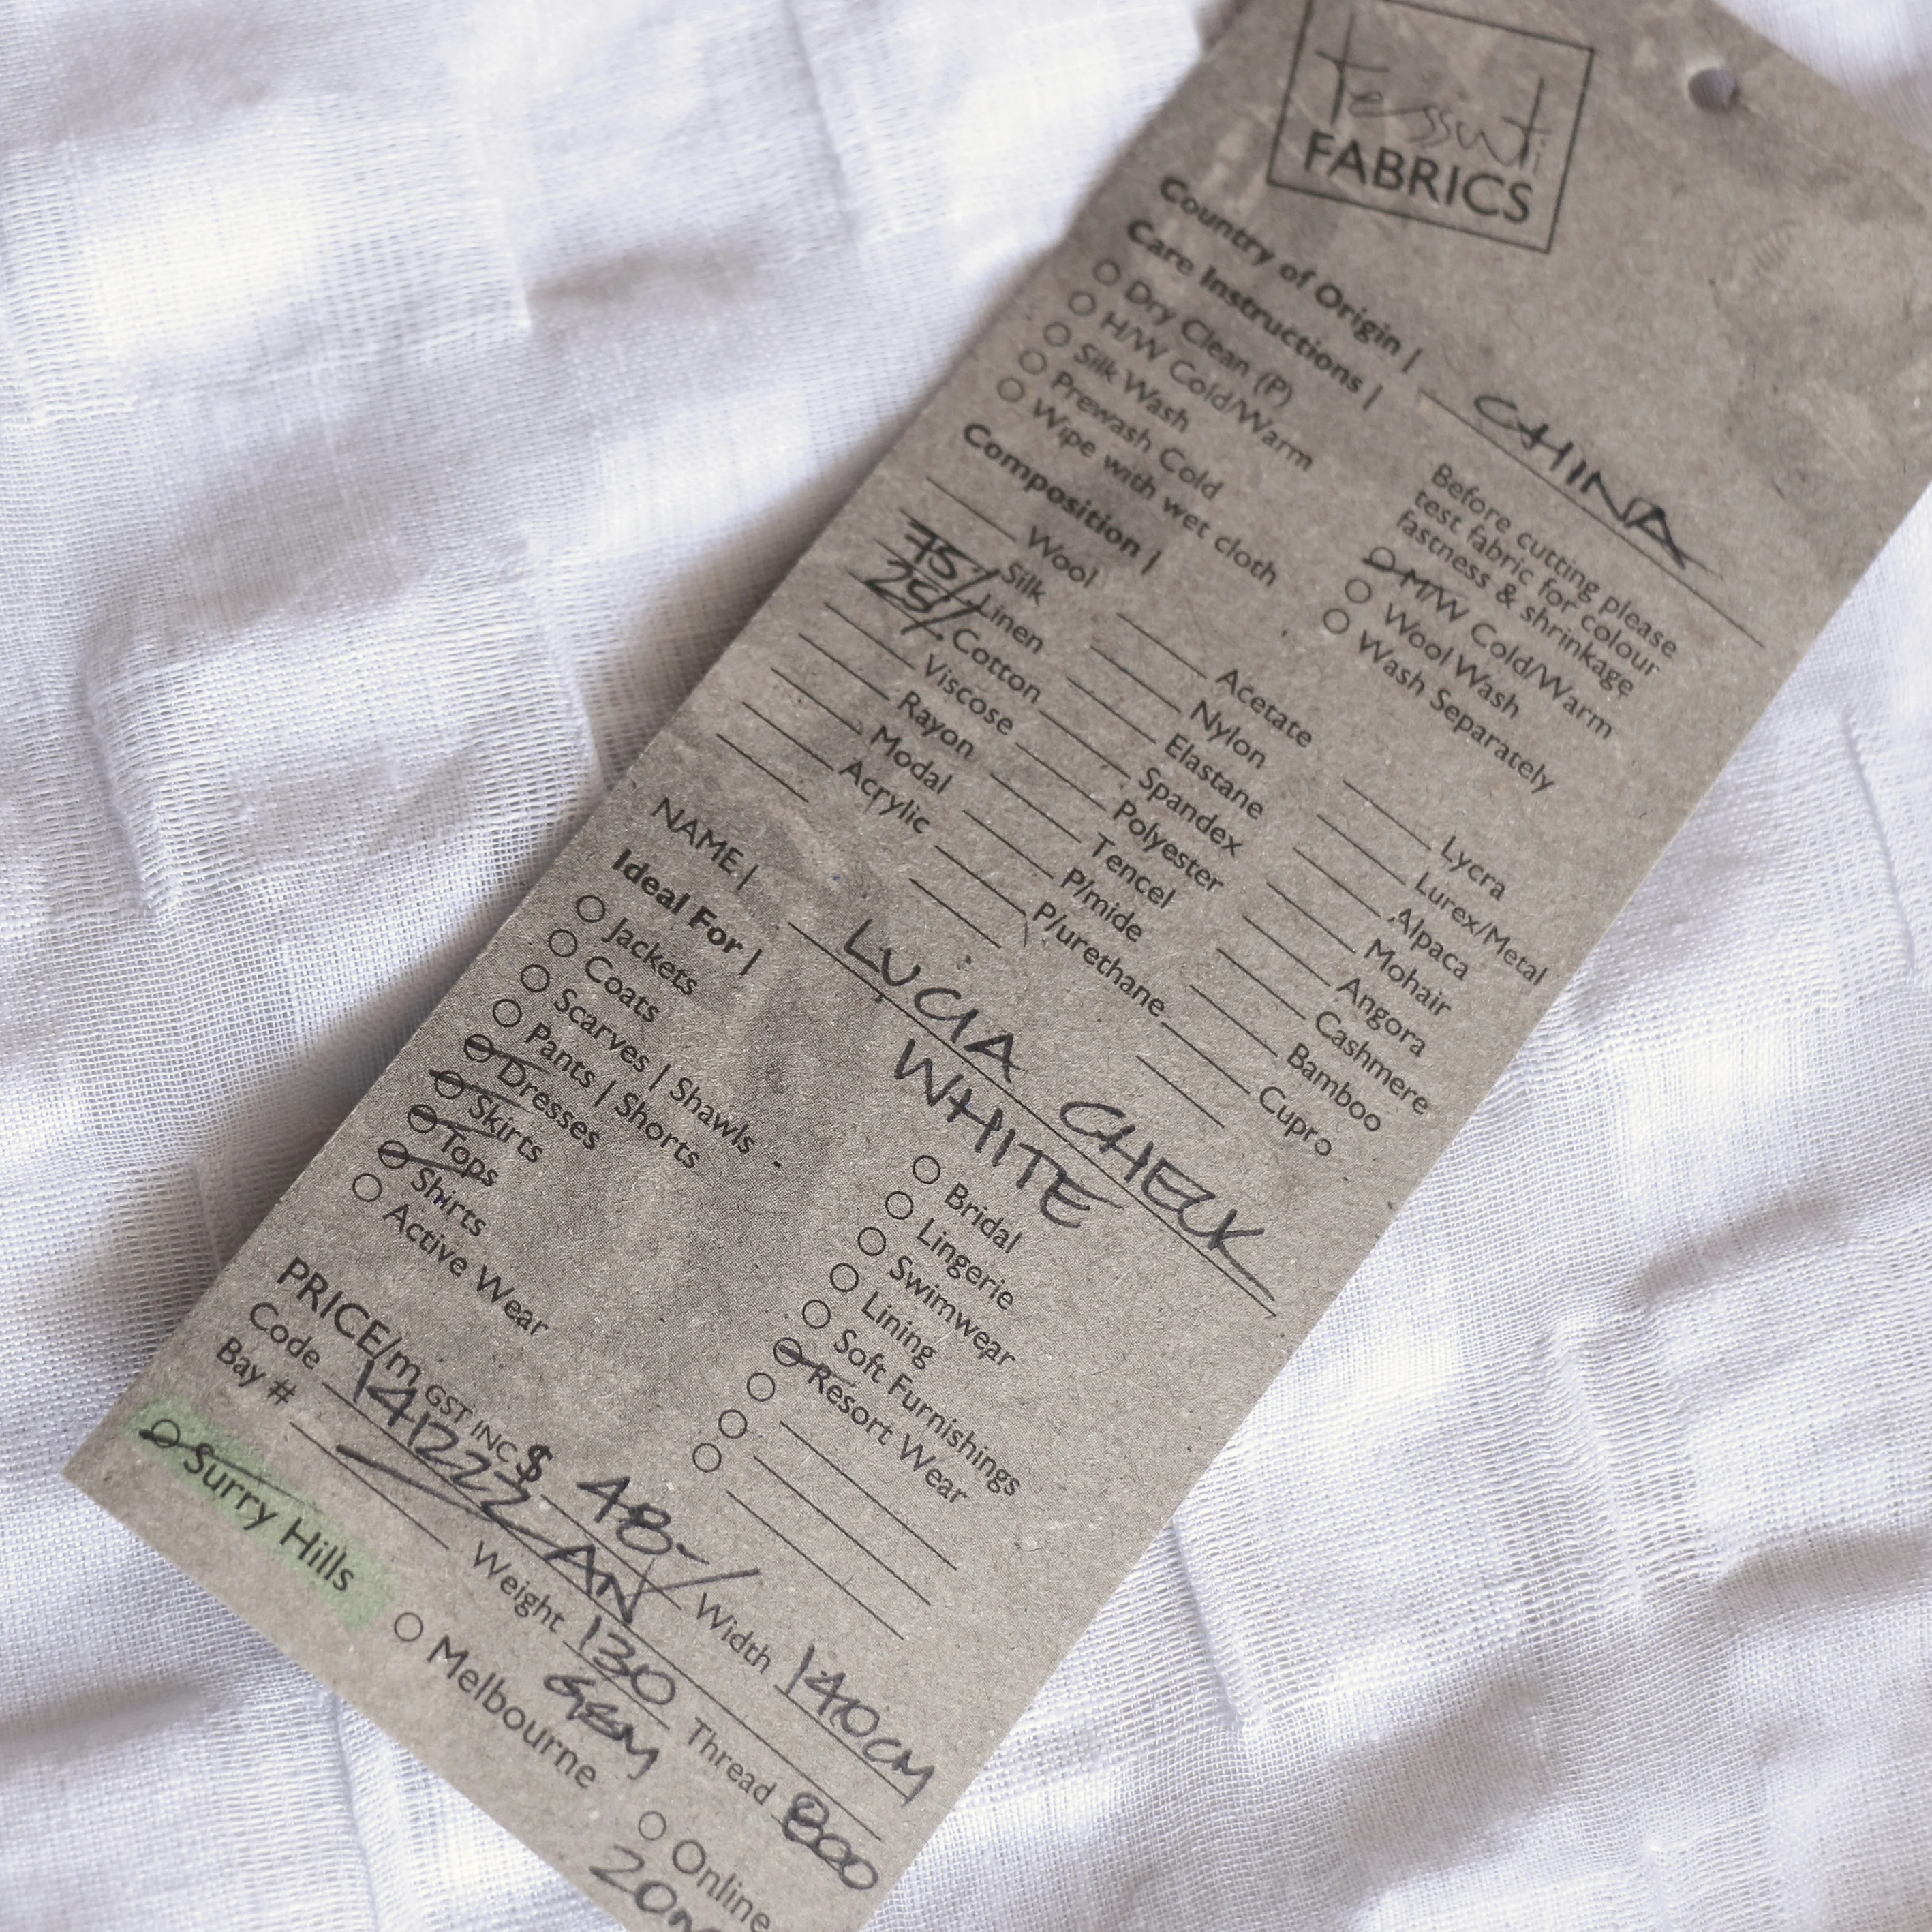 Tessuti
FABRICS
Country of Origin | CHINA
Care Instructions |
Dry Clean (P)
H/W Cold/Warm
Silk Wash
Prewash Cold
Wipe with wet cloth
Before cutting please
test fabric for colour
fastness & shrinkage
M/W Cold/Warm
Wool Wash
Wash Separately
Composition |
Wool
Silk
75% Linen
25% Cotton
Viscose
Rayon
Modal
Acrylic
Acetate
Nylon
Elastane
Spandex
Polyester
Tencel
P/mide
P/urethane
Lycra
Lurex/Metal
Alpaca
Mohair
Angora
Cashmere
Bamboo
Cupro
NAME | LUCIA CHECK
WHITE
Ideal For |
Jackets
Coats
Scarves | Shawls
Pants | Shorts
Dresses
Skirts
Tops
Shirts
Active Wear
Bridal
Lingerie
Swimwear
Lining
Soft Furnishings
Resort Wear
PRICE/m GST INC $ 48- Width 140CM
Code 141223 AN Weight 130 GSM Thread 800
Bay #
Surry Hills
Melbourne
Online